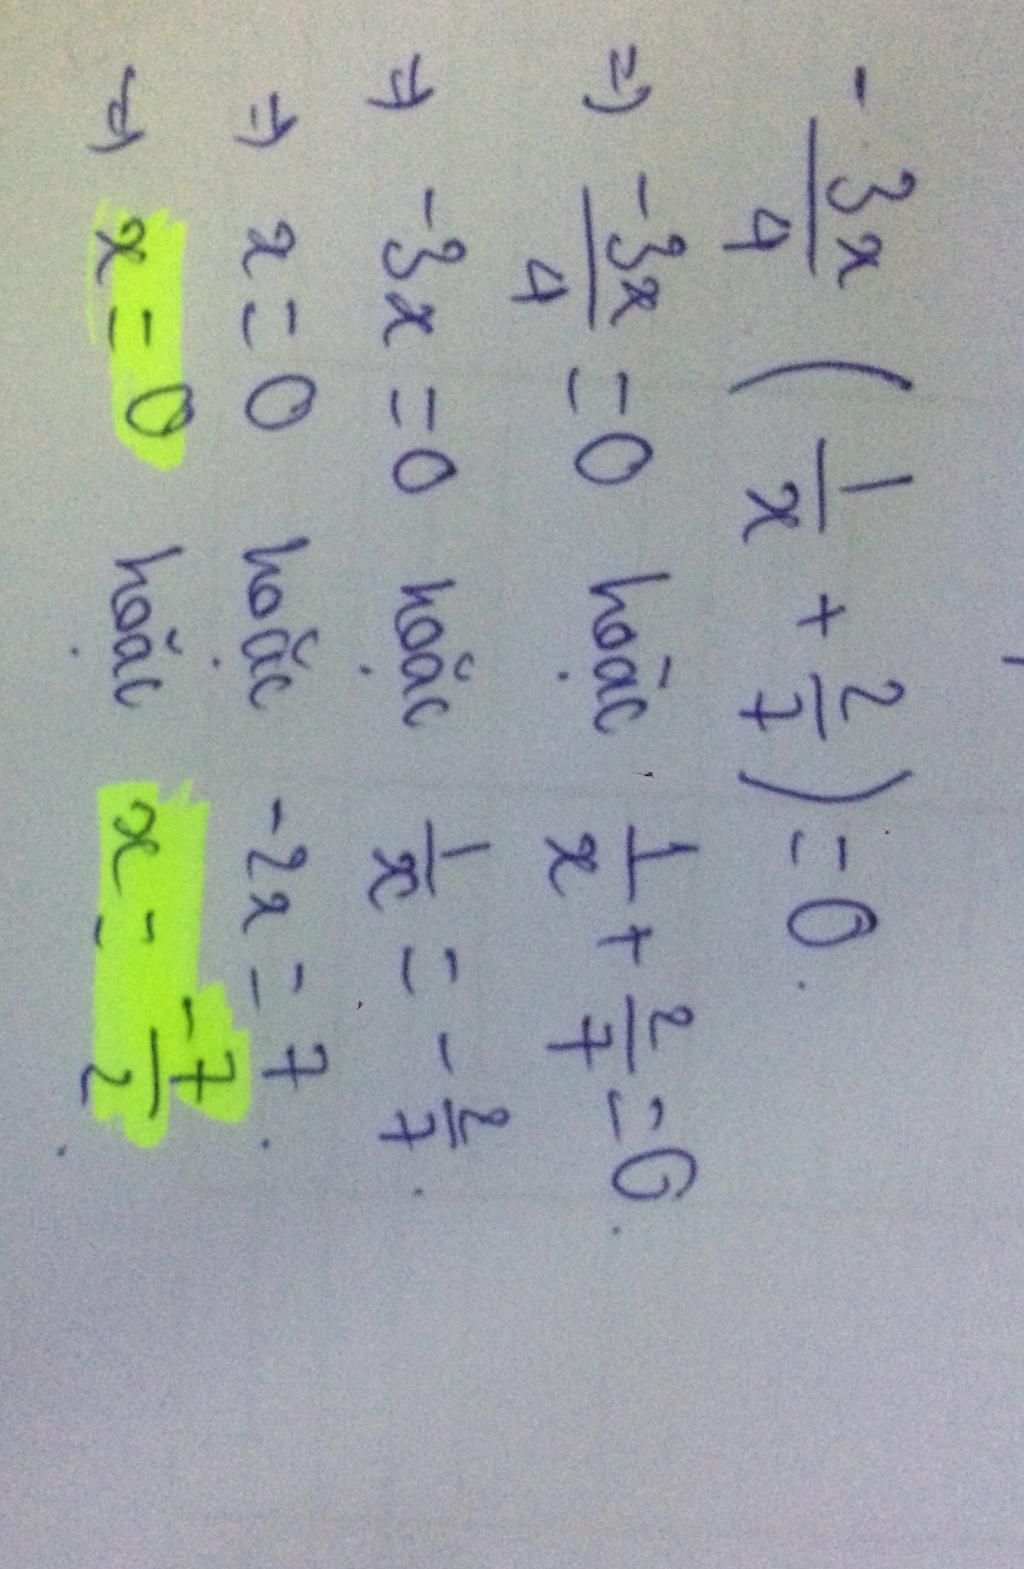 - 3x/4 (1/x + 2/7) = 0.
=) -3x/4 = 0 hoặc 1/x + 2/7 = 0.
=) -3x = 0 hoặc 1/x = - 2/7.
=) x = 0 hoặc -2x = 7.
=) x = 0 hoặc x = -7/2.